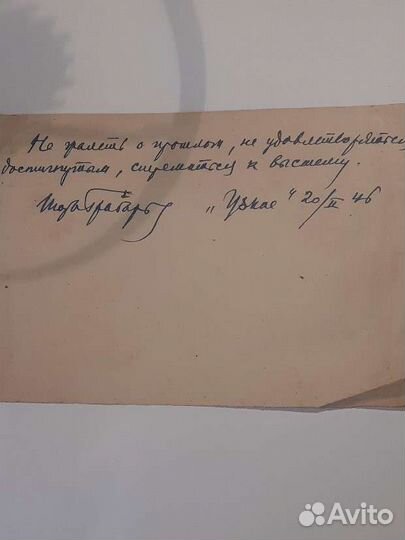 Не жалеть о прошлом, не удовлетворяться
достигнутым, стремиться к высшему.
Игорь Грабарь „Узкое“ 20/II 46
Avito